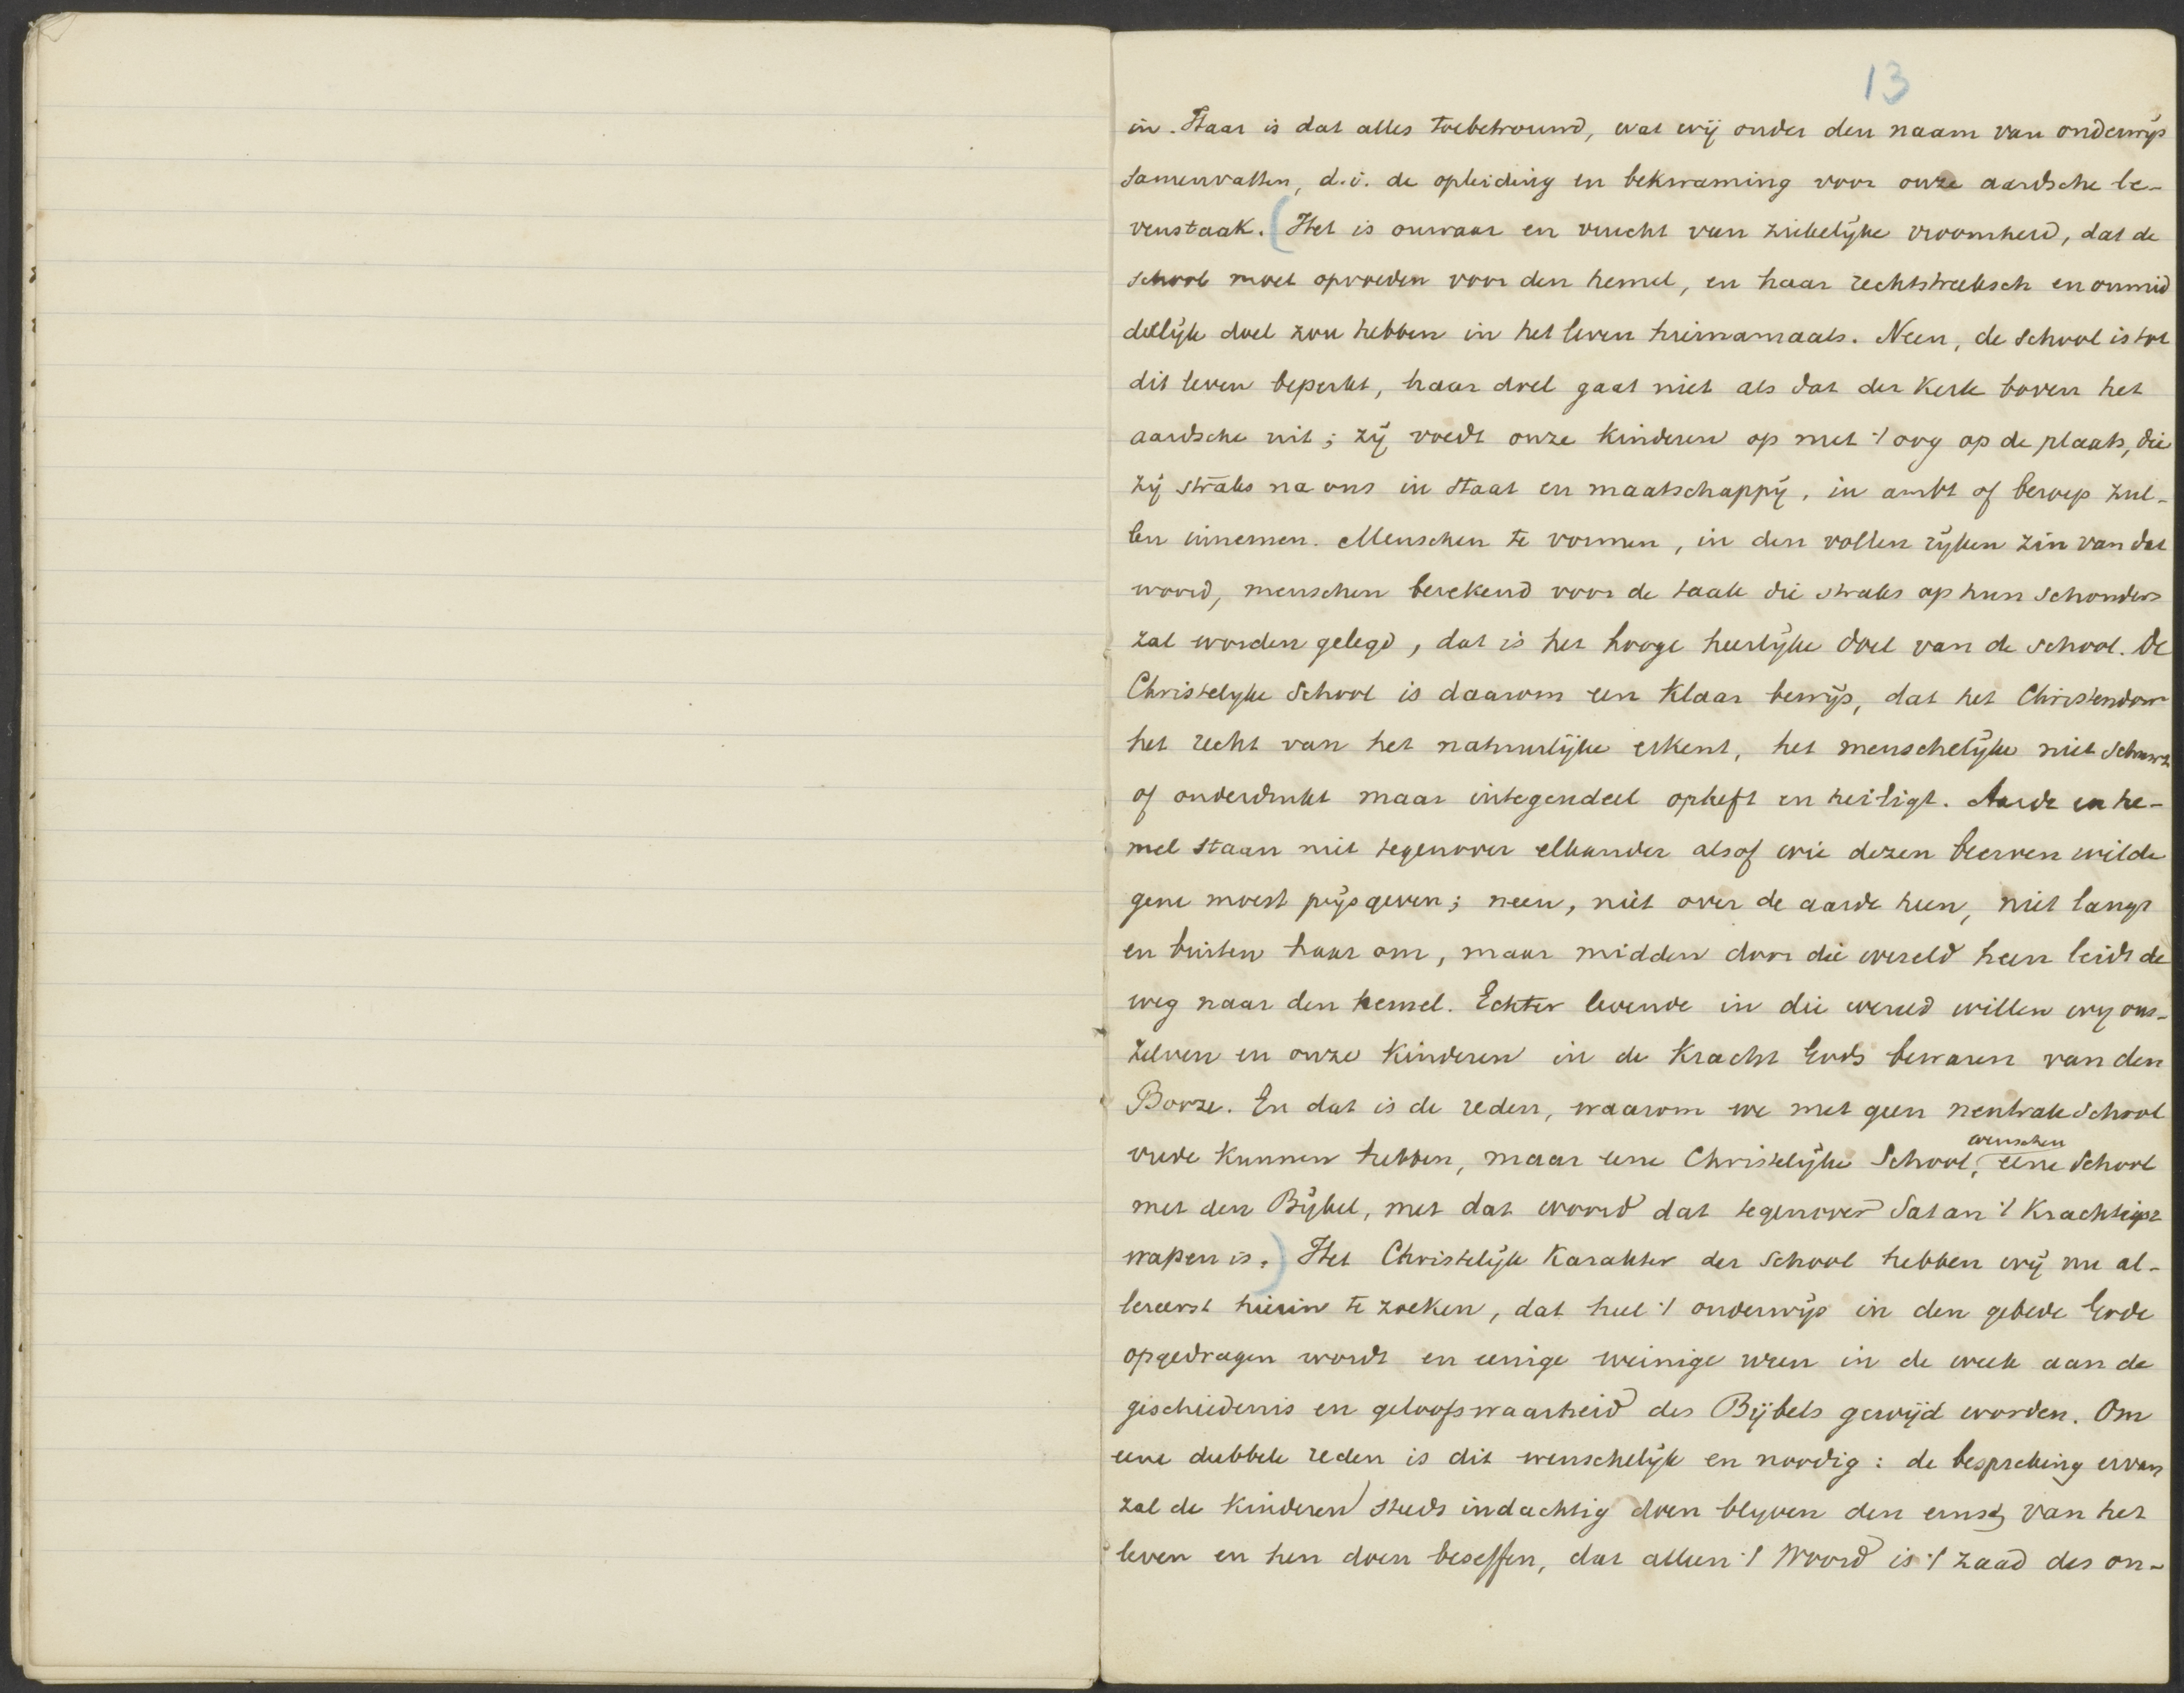 13
in. Haar is dat alles toebetrouwd, wat wij onder den naam van onderwijs
samenvatten, d.i. de opleiding en bekwaming voor onze aardsche le-
venstaak. (Het is onwaar en vrucht van ziekelijke vroomheid, dat de
school moet opvoeden voor den hemel, en haar rechtstreeksch en onmid
dellijk doel zou hebben in het leven hiernamaals. Neen, de school is tot
dit leven beperkt, haar doel gaat niet als dat der Kerk boven het
aardsche uit; zij voedt onze kinderen op met 't oog op de plaats, die
zij straks na ons in Staat en maatschappij, in ambt of beroep zul-
len innemen. Menschen te vormen, in den vollen rijken zin van dat
woord, menschen berekend voor de taak die straks op hun schouders
zal worden gelegd, dat is het hooge heerlijke doel van de school. De
Christelyke School is daarom een klaar bewijs, dat het Christendom
het recht van het natuurlijke erkent, het menschelijke niet schuwt
of onderdrukt maar integendeel opheft en heiligt. Aarde en he-
mel staan niet tegenover elkander alsof wie dezen beërven wilde
gene moest prijsgeven; neen, niet over de aarde heen, niet langs
en buiten haar om, maar midden door die wereld heen leidt de
weg naar den hemel. Echter levende in die wereld willen wy ons-
zelven en onze kinderen in de kracht Gods bewaren van den
Booze. En dat is de reden, waarom we met geen neutrale school
vrede kunnen hebben, maar eene Christelijke School, wenschen eene School
met den Bijbel, met dat woord dat tegenover Satan 't krachtigst
wapen is.) Het Christelijk Karakter der School hebben wij nu al-
lereerst hierin te zoeken, dat heel 't onderwijs in den gebede Gode
opgedragen wordt en eenige weinige uren in de week aan de
geschiedenis en geloofswaarheid des Bijbels gewijd worden. Om
eene dubbele reden is dit wenschelijk en noodig: de bespreking ervan
zal de kinderen steeds indachtig doen blyven den ernst van het
leven en hen doen beseffen, dat alleen 't Woord is 't zaad des on-